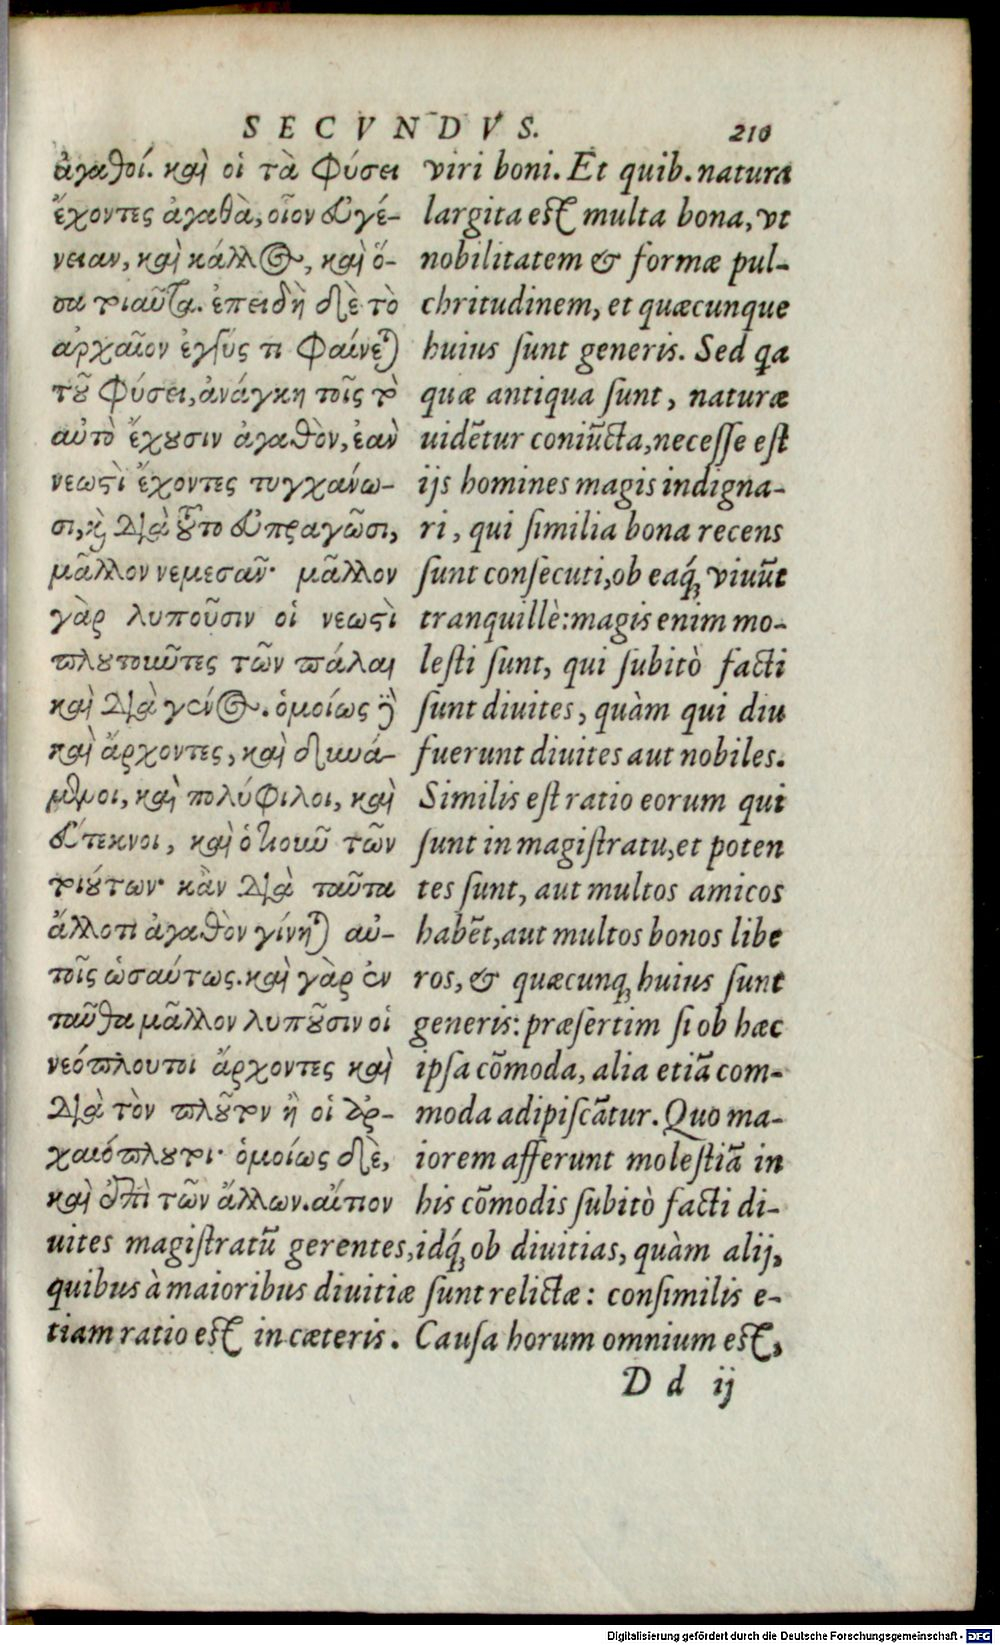 SECVNDVS. 210
ἀγαθοί. καὶ οἱ τὰ φύσει
ἔχοντες ἀγαθὰ, οἷον εὐγέ-
νειαν, καὶ κάλλος, καὶ ὅ-
σα τοιαῦτα. ἐπειδὴ δὲ τὸ
ἀρχαῖον ἐγγύς τι φαίνεται
τοῦ φύσει, ἀνάγκη τοῖς τὸ
αὐτὸ ἔχουσιν ἀγαθὸν, ἐὰν
νεωστὶ ἔχοντες τυγχάνω-
σι, καὶ διὰ τοῦτο εὐπραγῶσι,
μᾶλλον νεμεσᾶν· μᾶλλον
γὰρ λυποῦσιν οἱ νεωστὶ
πλουτοιῦτες τῶν πάλαι
καὶ διὰ γένος. ὁμοίως δὲ
καὶ ἄρχοντες, καὶ δυνά-
μενοι, καὶ πολύφιλοι, καὶ
εὔτεκνοι, καὶ ὁτιοιοῦ τῶν
τοιούτων· κἂν διὰ ταῦτα
ἄλλοτι ἀγαθὸν γίνηται αὐ-
τοῖς ὡσαύτως. καὶ γὰρ ἐν
ταῦθα μᾶλλον λυποῦσιν οἱ
νεόπλουτοι ἄρχοντες καὶ
διὰ τὸν πλοῦτον ἢ οἱ ἀρ-
χαιόπλουτοι· ὁμοίως δὲ,
καὶ ἐπὶ τῶν ἄλλων. αἴτιον
viri boni. Et quib. natura
largita est multa bona, vt
nobilitatem & formæ pul-
chritudinem, et quæcunque
huius sunt generis. Sed q̃a
quæ antiqua sunt, naturæ
uidẽtur coniũcta, necesse est
ijs homines magis indigna-
ri, qui similia bona recens
sunt consecuti, ob eaq́; viuũt
tranquillè: magis enim mo-
lesti sunt, qui subitò facti
sunt diuites, quàm qui diu
fuerunt diuites aut nobiles.
Similis est ratio eorum qui
sunt in magistratu, et poten
tes sunt, aut multos amicos
habẽt, aut multos bonos libe
ros, & quæcunq; huius sunt
generis: præsertim si ob hæc
ipsa cõmoda, alia etiã com-
moda adipiscãtur. Quo ma-
iorem afferunt molestiã in
his cõmodis subitò facti di-
uites magistratũ gerentes, idq́; ob diuitias, quàm alij,
quibus à maioribus diuitiæ sunt relictæ: consimilis e-
tiam ratio est in cæteris. Causa horum omnium est,
D d ij
Digitalisierung gefördert durch die Deutsche Forschungsgemeinschaft - DFG